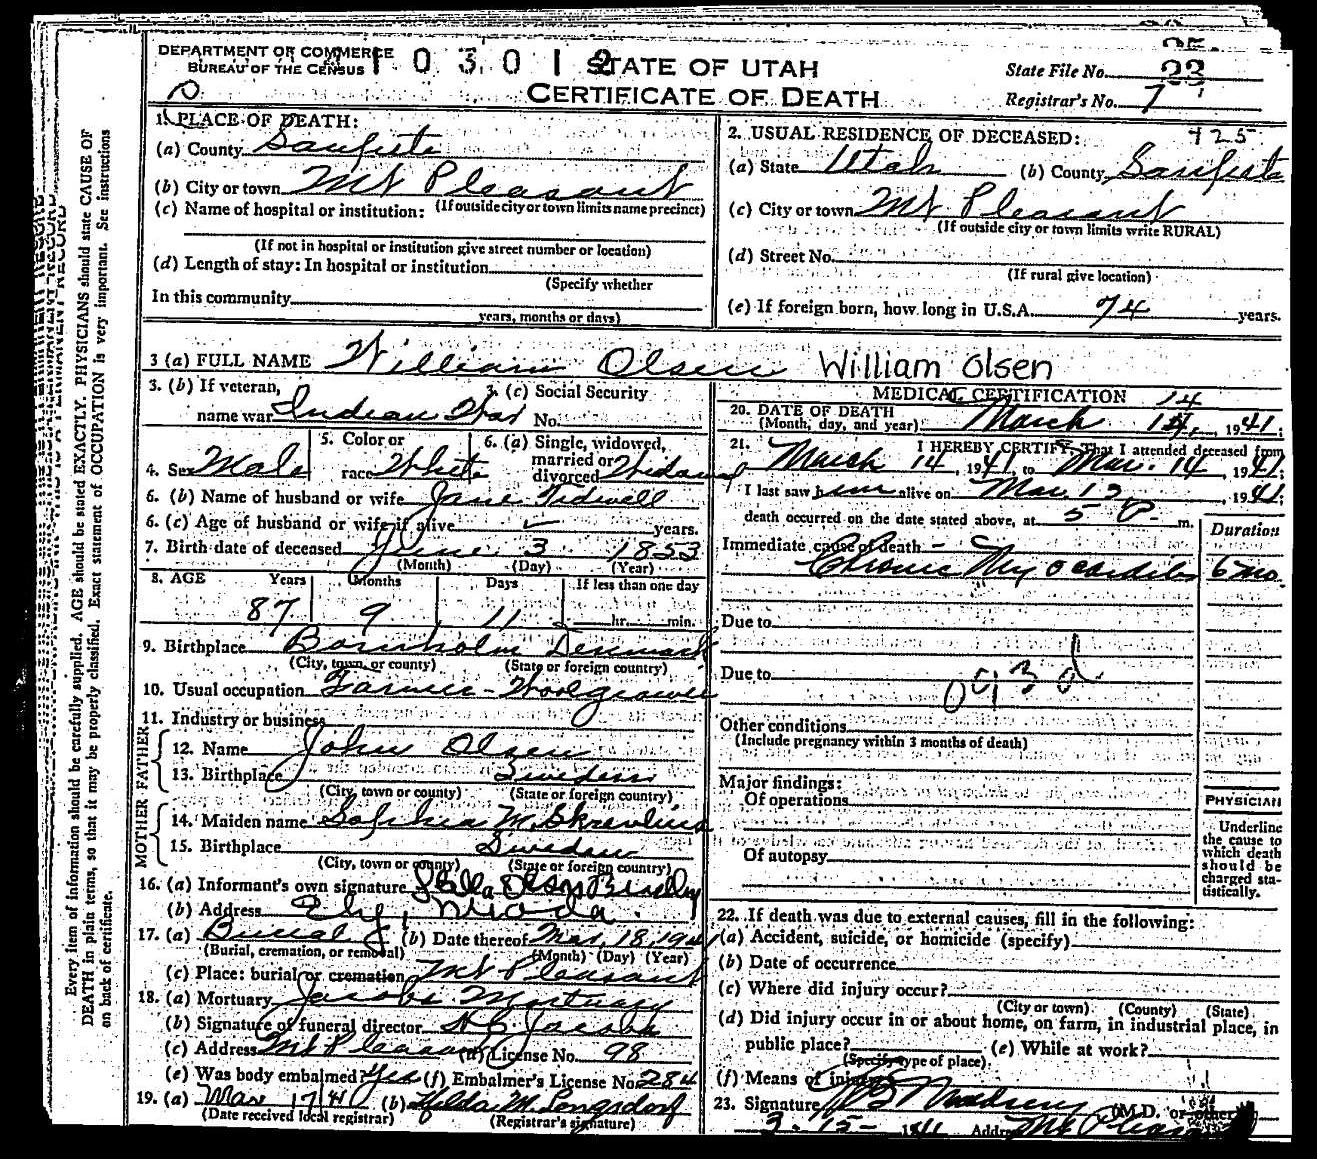 DEPARTMENT OF COMMERCE
BUREAU OF THE CENSUS
1 0 3 0 1 2
STATE OF UTAH
CERTIFICATE OF DEATH
State File No. 23
Registrar's No. 7
1. PLACE OF DEATH:
(a) County Sanpete
(b) City or town Mt Pleasant
(If outside city or town limits name precinct)
(c) Name of hospital or institution:
(If not in hospital or institution give street number or location)
(d) Length of stay: In hospital or institution
(Specify whether
In this community
years, months or days)
2. USUAL RESIDENCE OF DECEASED: 425
(a) State Utah (b) County Sanpete
(c) City or town Mt Pleasant
(If outside city or town limits write RURAL)
(d) Street No.
(If rural give location)
(e) If foreign born, how long in U.S.A. 74 years.
3 (a) FULL NAME William Olsen William Olsen
3. (b) If veteran, name war Indian War
3. (c) Social Security No.
4. Sex Male
5. Color or race White
6. (a) Single, widowed, married or divorced Widowed
6. (b) Name of husband or wife Jane Tidwell
6. (c) Age of husband or wife if alive years.
7. Birth date of deceased June 3 1853
(Month) (Day) (Year)
8. AGE Years Months Days If less than one day
87 9 11 hr. min.
9. Birthplace Bornholm Denmark
(City, town, or county) (State or foreign country)
10. Usual occupation Farmer - Woolgrower
11. Industry or business
FATHER
12. Name John Olsen
13. Birthplace Sweden
(City, town or county) (State or foreign country)
MOTHER
14. Maiden name Sophia M.
15. Birthplace Sweden
(City, town or county) (State or foreign country)
16. (a) Informant's own signature Stella Olson Bradley
(b) Address Ely, Nevada.
17. (a) Burial (b) Date thereof Mar. 18, 1941
(Burial, cremation, or removal) (Month) (Day) (Year)
(c) Place: burial or cremation Mt Pleasant
18. (a) Mortuary Jacobs Mortuary
(b) Signature of funeral director Jacobs
(c) Address Mt Pleasant (d) License No. 98
(e) Was body embalmed? Yes (f) Embalmer's License No. 284
19. (a) Mar 17 41 (b) Hilda M. Longsdorf
(Date received local registrar) (Registrar's signature)
MEDICAL CERTIFICATION
20. DATE OF DEATH
(Month, day, and year): March 14, 1941;
21. I HEREBY CERTIFY, That I attended deceased from
March 14, 1941, to Mar. 14 1941;
I last saw him alive on Mar 13, 1941;
death occurred on the date stated above, at 5 P. m.
Duration
Immediate cause of death -
Chronic Myocarditis 6 mo.
Due to
Due to
093d
Other conditions
(Include pregnancy within 3 months of death)
Major findings:
Of operations
Of autopsy
PHYSICIAN
Underline
the cause to
which death
should be
charged sta-
tistically.
22. If death was due to external causes, fill in the following:
(a) Accident, suicide, or homicide (specify)
(b) Date of occurrence
(c) Where did injury occur?
(City or town) (County) (State)
(d) Did injury occur in or about home, on farm, in industrial place, in
public place? (e) While at work?
(Specify type of place).
(f) Means of injury
23. Signature (M.D. or other)
3-15-1941 Address Mt Pleasant
Every item of information should be carefully supplied. AGE should be stated EXACTLY. PHYSICIANS should state CAUSE OF
DEATH in plain terms, so that it may be properly classified. Exact statement of OCCUPATION is very important. See instructions
on back of certificate.